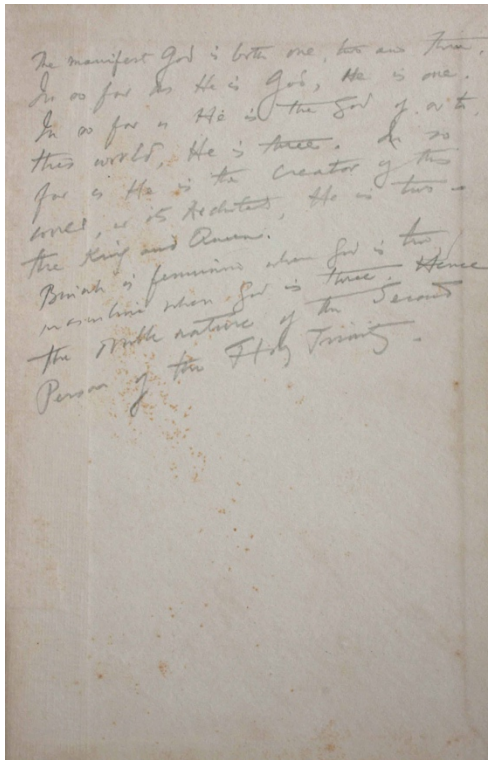 The manifest God is both one, two and three.
In so far as He is God, He is one.
In so far as He is the God of, or in,
this world, He is three. In so
far as He is the Creator of this
world, or its Architect, He is two –
the King and Queen.
Binah is feminine when God is two,
masculine when God is three. Hence
the double nature of the Second
Person of the Holy Trinity.